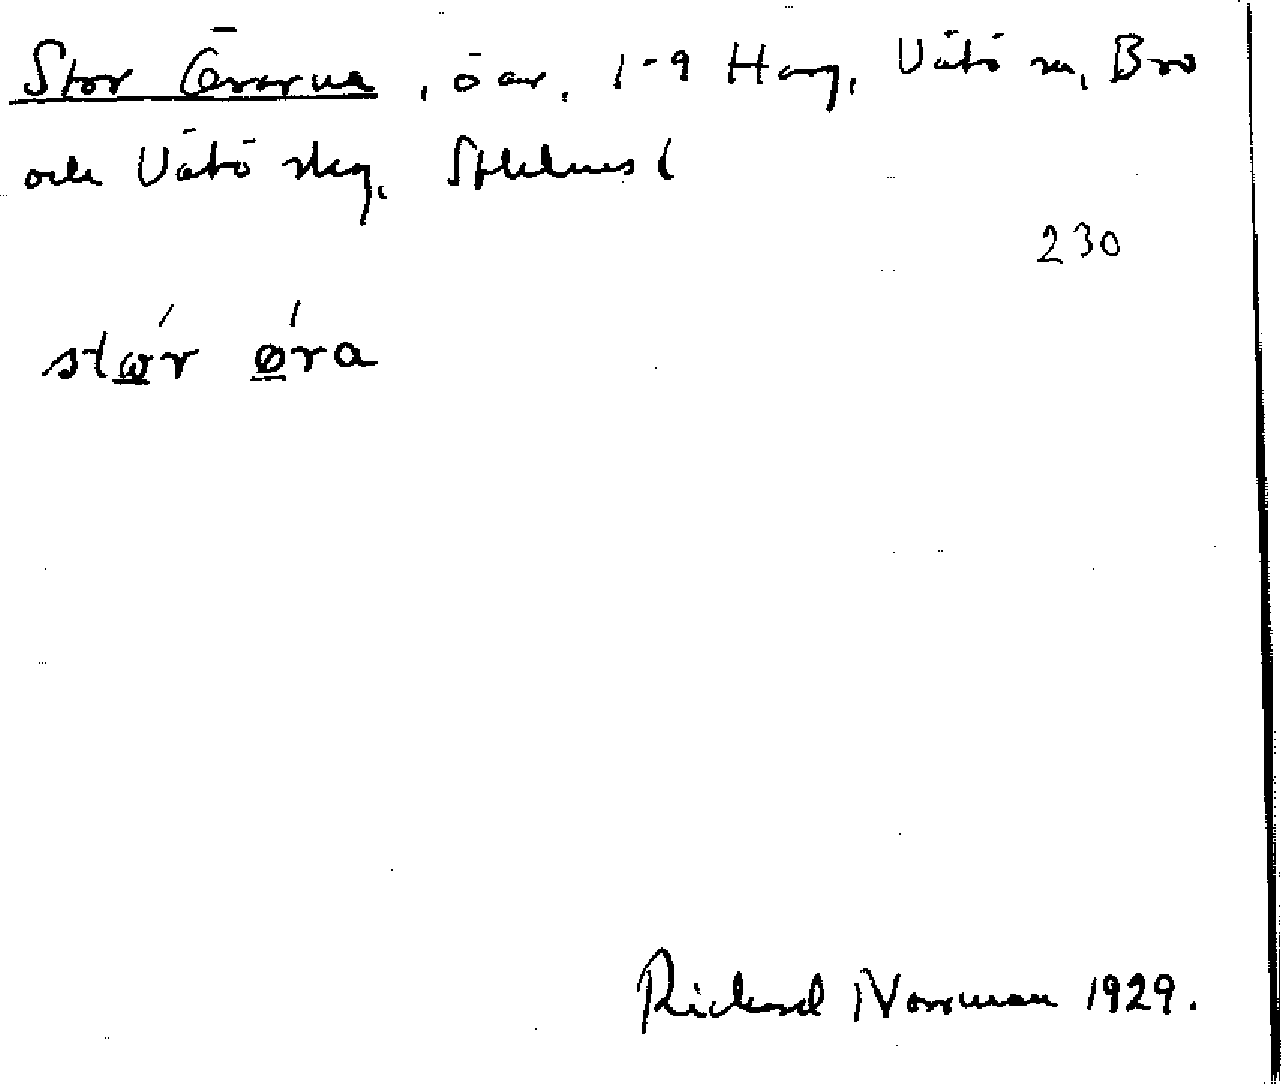 Stor Örarna, öar, 1-9 Harg, Vätö sn, Bro
och Vätö skg, Sthlms l
230
stω´r ø´ra
Richard Norrman 1929.